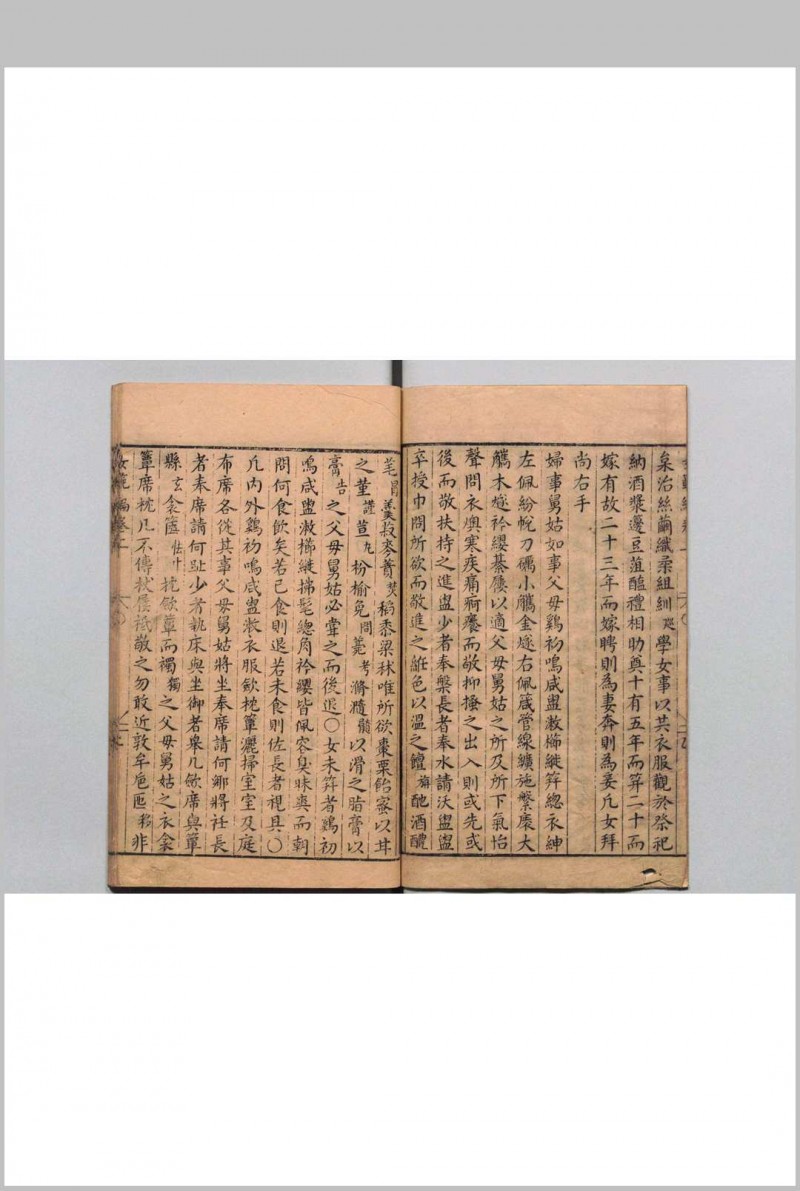 枲治絲繭織紝組紃學女事以共衣服觀於祭祀
納酒漿邊豆菹醢禮相助奠十有五年而筓二十而
嫁有故二十三年而嫁聘則為妻奔則為妾凡女拜
尚右手
婦事舅姑如事父母鷄初鳴咸盥漱櫛縰筓緫衣紳
左佩紛帨刀礪小觿金燧右佩箴管線纊施繁褁大
觿木燧衿纓綦屨以適父母舅姑之所及所下氣怡
聲問衣燠寒疾痛疴癢而敬抑搔之出入則或先或
後而敬扶持之進盥少者奉槃長者奉水請沃盥盥
卒授巾問所欲而敬進之 色以溫之饘 酏酒醴
芼羹菽麥蕡稻黍梁秫唯所欲棗栗飴蜜以甘
之堇謹荁九枌榆免問薧考滫瀡髓以滑之脂膏以
膏告之父母舅姑必甞之而後退〇女未筓者鷄初
鳴咸盥漱櫛縰拂髦緫角衿纓皆佩容臭昧爽而朝
問何食飲矣若已食則退若未食則佐長者視具〇
凡內外鷄初鳴咸盥漱衣服歛枕簟灑掃室室及庭
布席各從其事父母舅姑將坐奉席請何鄉將衽長
者奉席請何趾少者執床與坐御者舉几歛席與簟
縣玄衾篋 枕歛簟而襡獨之父母舅姑之衣衾
簟席枕几不傳杖屨祗敬之勿敢近敦牟卮匜 非